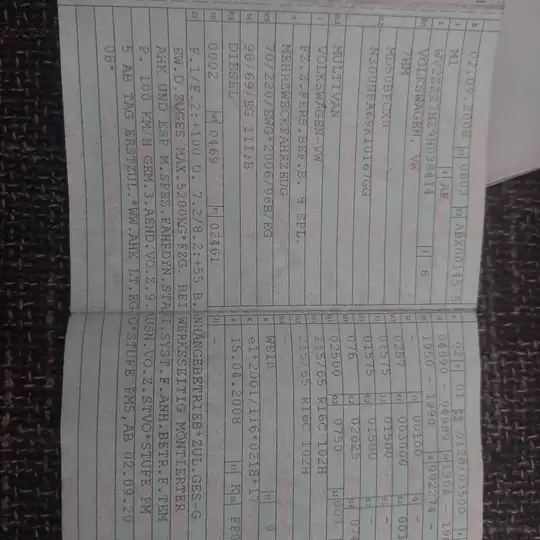 02.09.2008 0603 ABX00145 5
M1 AF
WV2ZZZ7HZ9H038414
VOLKSWAGEN, VW 6
7HM
MULTIVAN
VOLKSWAGEN-VW
FZ.Z.PERS.BEF.B. 8 SPL.
MEHRZWECKFAHRZEUG
70/220/EWG*2006/96B/EG
98/69/EG III;B
DIESEL
0002 0469 02461
F.1/F.2:+100 U. 7.2/8.2:+55 B. ANHÄNGEBETRIEB*ZUL.GES-G
EW.D.ZUGES MAX.5200KG*FZG. BEI WERKSSEITIG MONTIERTER
AHK UND ESP M.SPEZ.FAHRDYN.STABI.SYST.F.ANH.BETR.F.TEM
P. 100 KM/H GEM.3.AEND.VO.Z.9.AUSN.VO.Z.STVO*STUFE PM
5 AB TAG ERSTZUL.*WW.AHK LT.EG*STUFE PM5,AB 02.09.20
08*
0128/03500
04890 - 04989
1950 - 1990 002274 -
- 00100 -
0257 003000
01575 01500
01575 01500
076 02625
03500 0750
215/65 R16C 102H
215/65 R16C 102H
-
WEIß 0
e1*2001/116*0218*17
15.04.2008 K
-